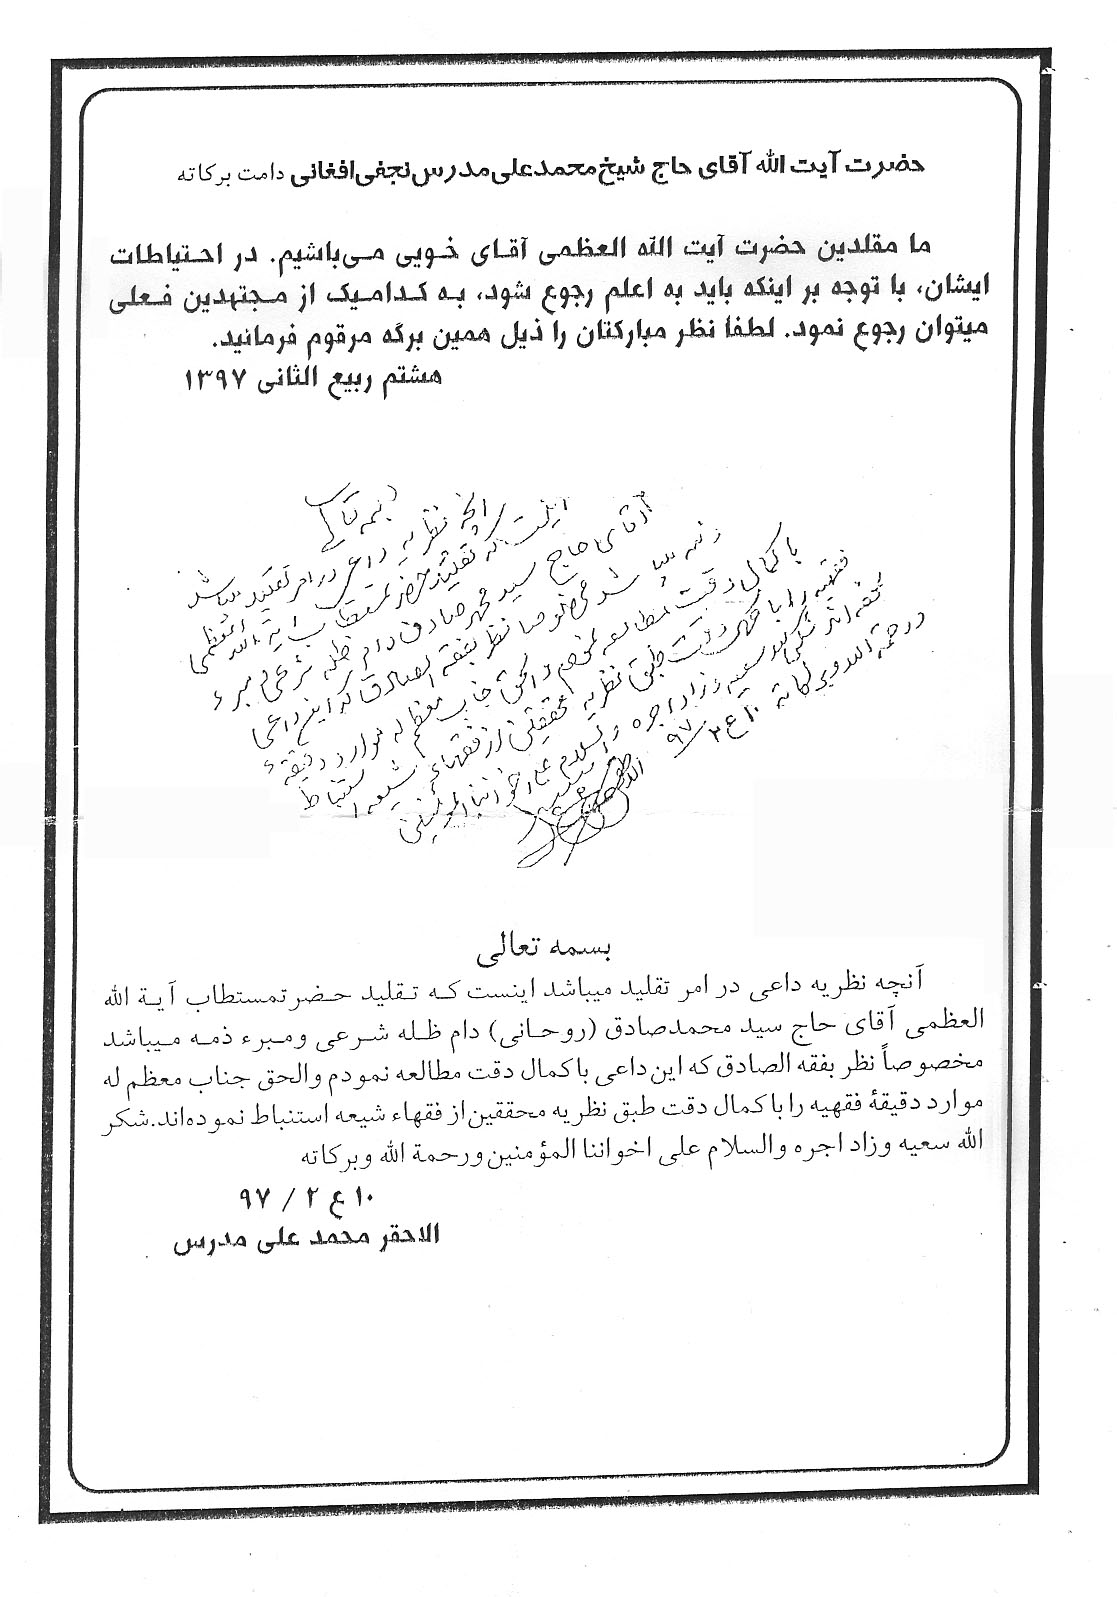 حضرت آیت الله آقای حاج شیخ محمدعلی مدرس نجفی افغانی دامت برکاته
ما مقلدین حضرت آیت الله العظمی آقای خویی می‌باشیم. در احتیاطات
ایشان، با توجه بر اینکه باید به اعلم رجوع شود، به کدامیک از مجتهدین فعلی
میتوان رجوع نمود. لطفا نظر مبارکتان را ذیل همین برگه مرقوم فرمائید.
هشتم ربیع الثانی ۱۳۹۷
بسمه تعالی
آنچه نظریه داعی در امر تقلید میباشد
اینست که تقلید حضرتمستطاب آیة الله العظمی
آقای حاج سید محمدصادق دام ظله شرعی و مبرء
ذمه میباشد مخصوصا نظر بفقه الصادق که این داعی
با کمال دقت مطالعه نمودم والحق جناب معظم له موارد دقیقهٔ
فقهیه را با کمال دقت طبق نظریه محققین از فقهاء شیعه استنباط
نموده‌اند شکر الله سعیه وزاد اجره والسلام علی اخواننا المؤمنین
ورحمة الله وبرکاته ۱۰ ع ۲ / ۹۷
بسمه تعالی
آنچه نظریه داعی در امر تقلید میباشد اینست که تقلید حضرتمستطاب آیة الله
العظمی آقای حاج سید محمدصادق (روحانی) دام ظله شرعی ومبرء ذمه میباشد
مخصوصاً نظر بفقه الصادق که این داعی با کمال دقت مطالعه نمودم والحق جناب معظم له
موارد دقیقهٔ فقهیه را با کمال دقت طبق نظریه محققین از فقهاء شیعه استنباط نموده‌اند.شکر
الله سعیه وزاد اجره والسلام علی اخواننا المؤمنین ورحمة الله وبرکاته
۱۰ ع ۲ / ۹۷
الاحقر محمد علی مدرس